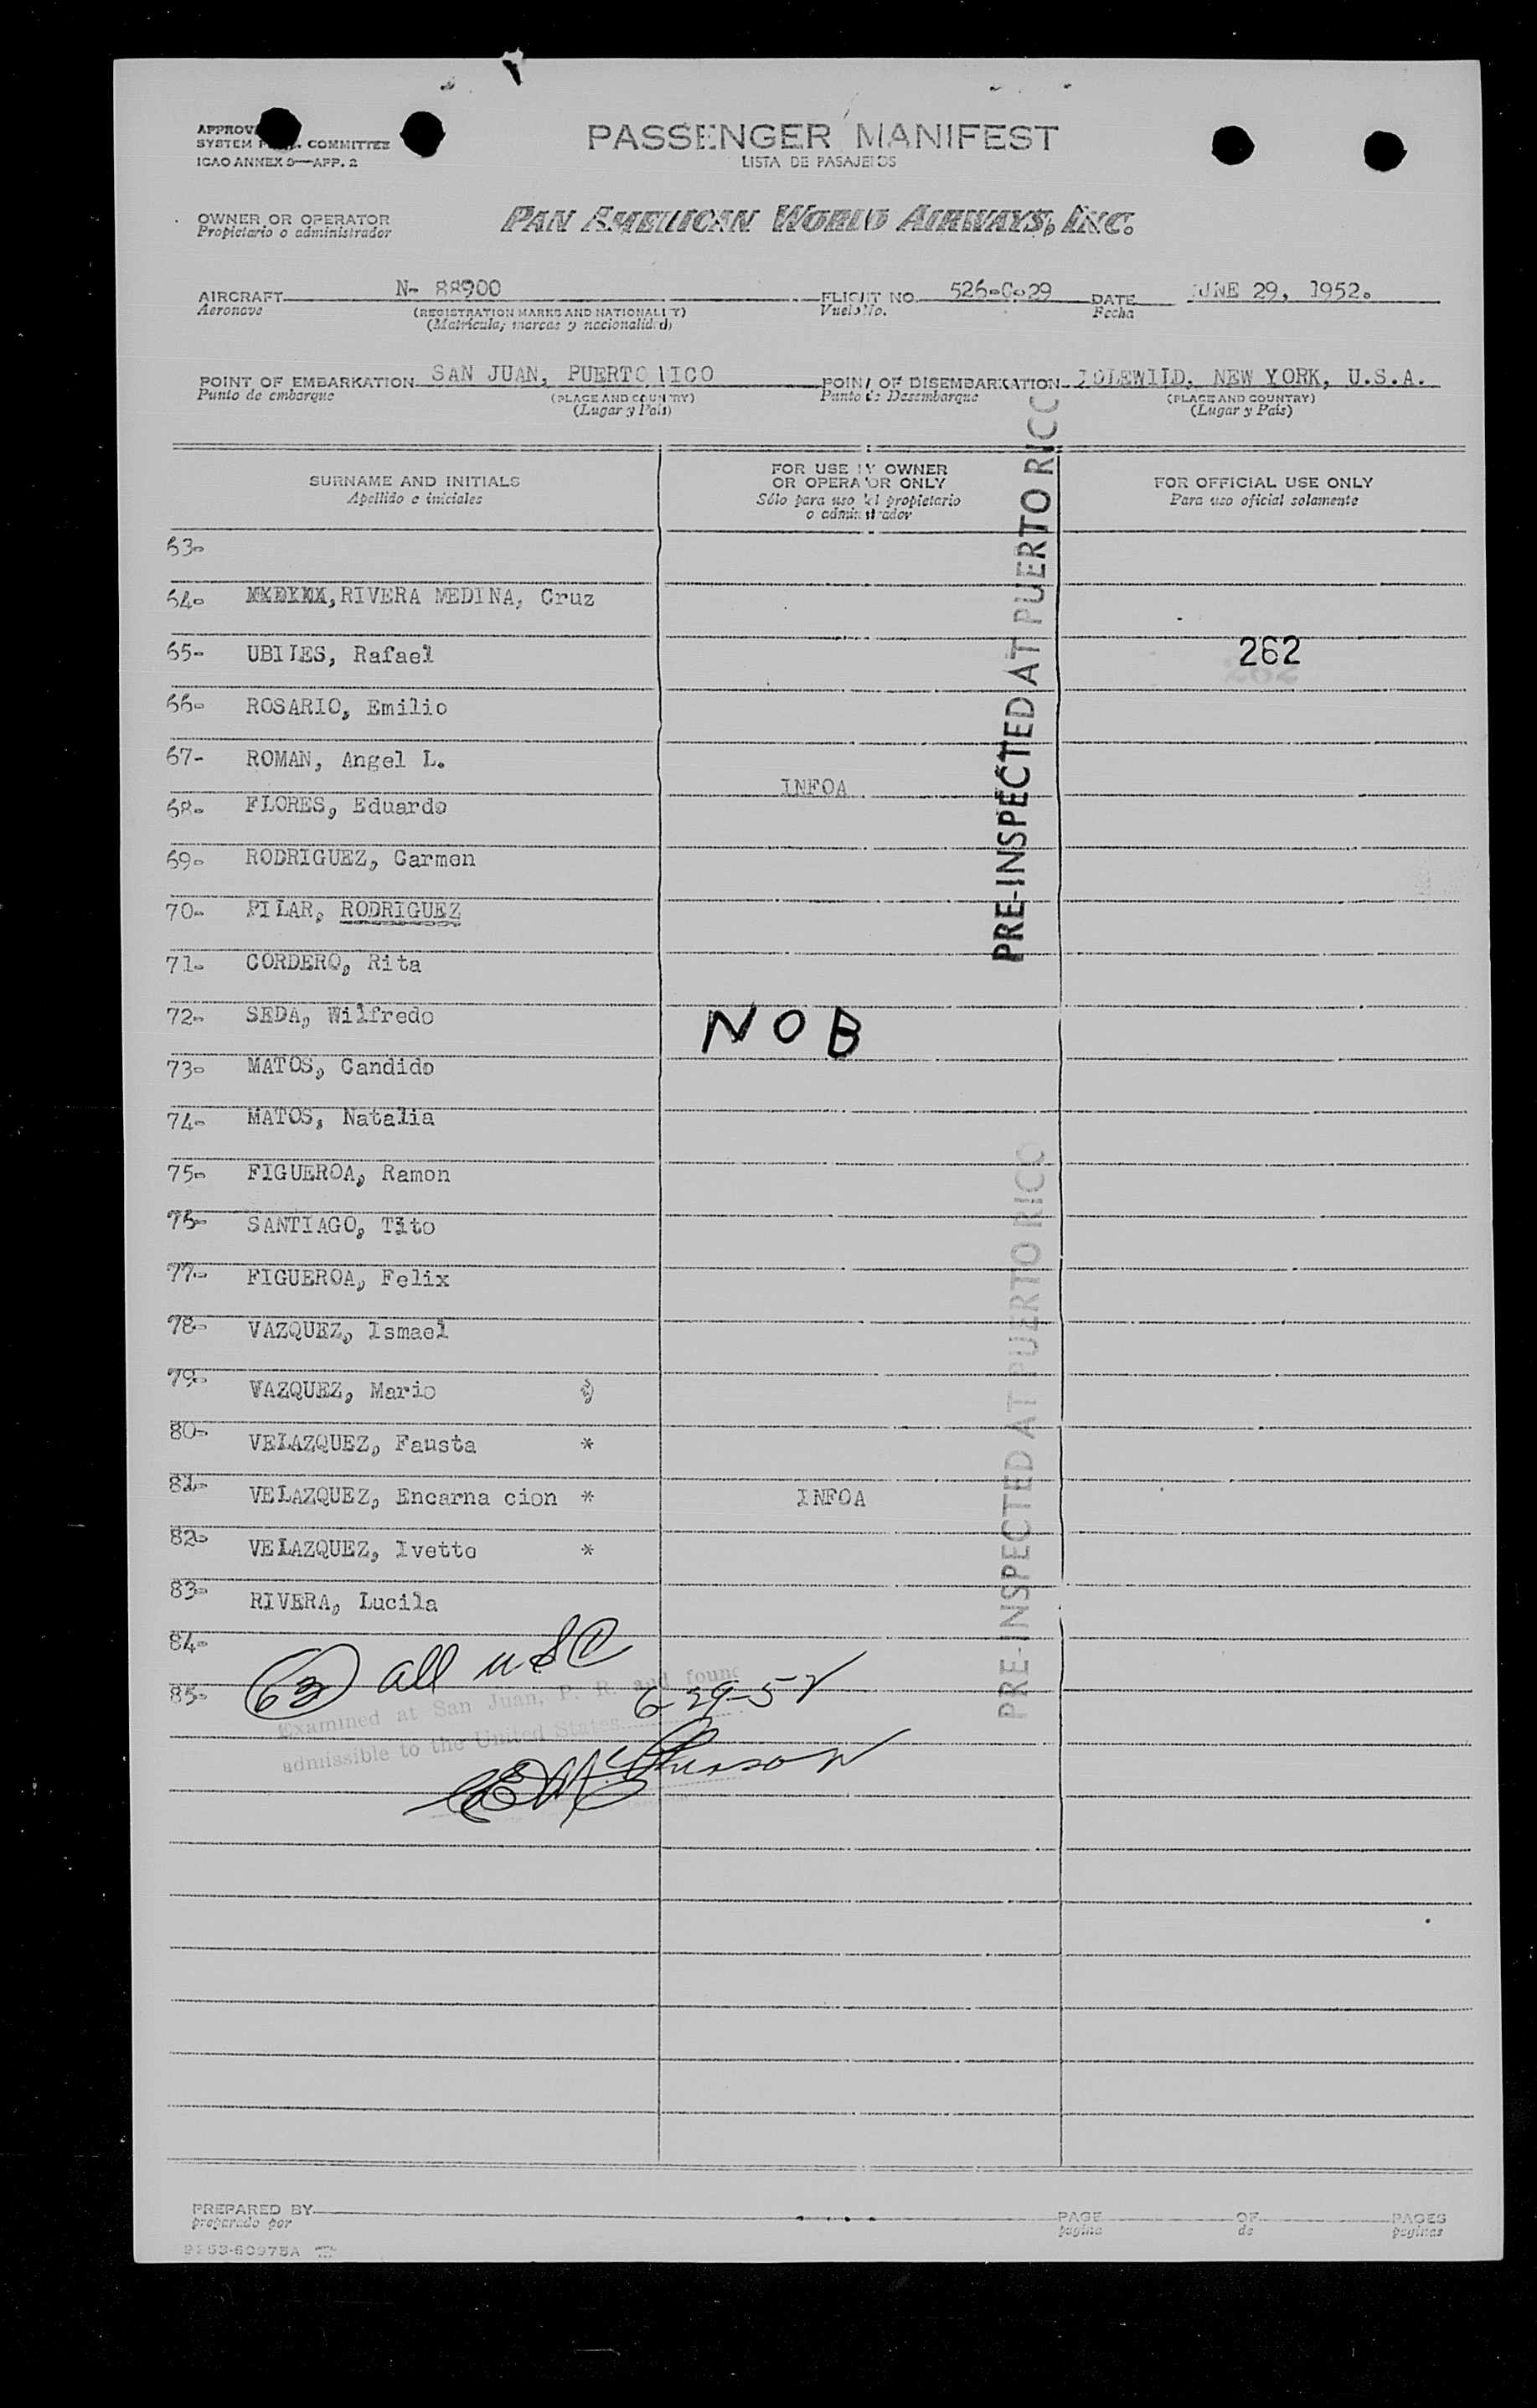 PASSENGER MANIFEST
LISTA DE PASAJEROS
SYSTEM COMMITTEE
ICAO ANNEX 9—APP. 2
OWNER OR OPERATOR
Propietario o administrador
PAN AMERICAN WORLD AIRWAYS, INC.
AIRCRAFT N- 88900 FLIGHT NO. 526-0-29 DATE JUNE 29, 1952.
Aeronave (REGISTRATION MARKS AND NATIONALITY) Vuelo No. Fecha
(Matrícula, marcas y nacionalidad)
POINT OF EMBARKATION SAN JUAN, PUERTO RICO POINT OF DISEMBARKATION IDLEWILD, NEW YORK, U.S.A.
Punto de embarque (PLACE AND COUNTRY) Punto de Desembarque (PLACE AND COUNTRY)
(Lugar y País) (Lugar y País)
SURNAME AND INITIALS FOR USE BY OWNER OR OPERATOR ONLY FOR OFFICIAL USE ONLY
Apellido e iniciales Sólo para uso del propietario o administrador Para uso oficial solamente
63-
64- RIVERA MEDINA, Cruz
65- UBILES, Rafael 262
66- ROSARIO, Emilio
67- ROMAN, Angel L.
INFOA
68- FLORES, Eduardo
69- RODRIGUEZ, Carmen
70- PILAR, RODRIGUEZ
71- CORDERO, Rita
72- SEDA, Wilfredo NOB
73- MATOS, Candido
74- MATOS, Natalia
75- FIGUEROA, Ramon
76- SANTIAGO, Tito
77- FIGUEROA, Felix
78- VAZQUEZ, Ismael
79- VAZQUEZ, Mario
80- VELAZQUEZ, Fausta *
81- VELAZQUEZ, Encarna cion * INFOA
82- VELAZQUEZ, Ivette *
83- RIVERA, Lucila
84-
85-
PRE-INSPECTED AT PUERTO RICO
PRE-INSPECTED AT PUERTO RICO
63 all USC
6-29-52
Examined at San Juan, P. R. and found
admissible to the United States
PREPARED BY PAGE OF PAGES
preparado por pagina de paginas